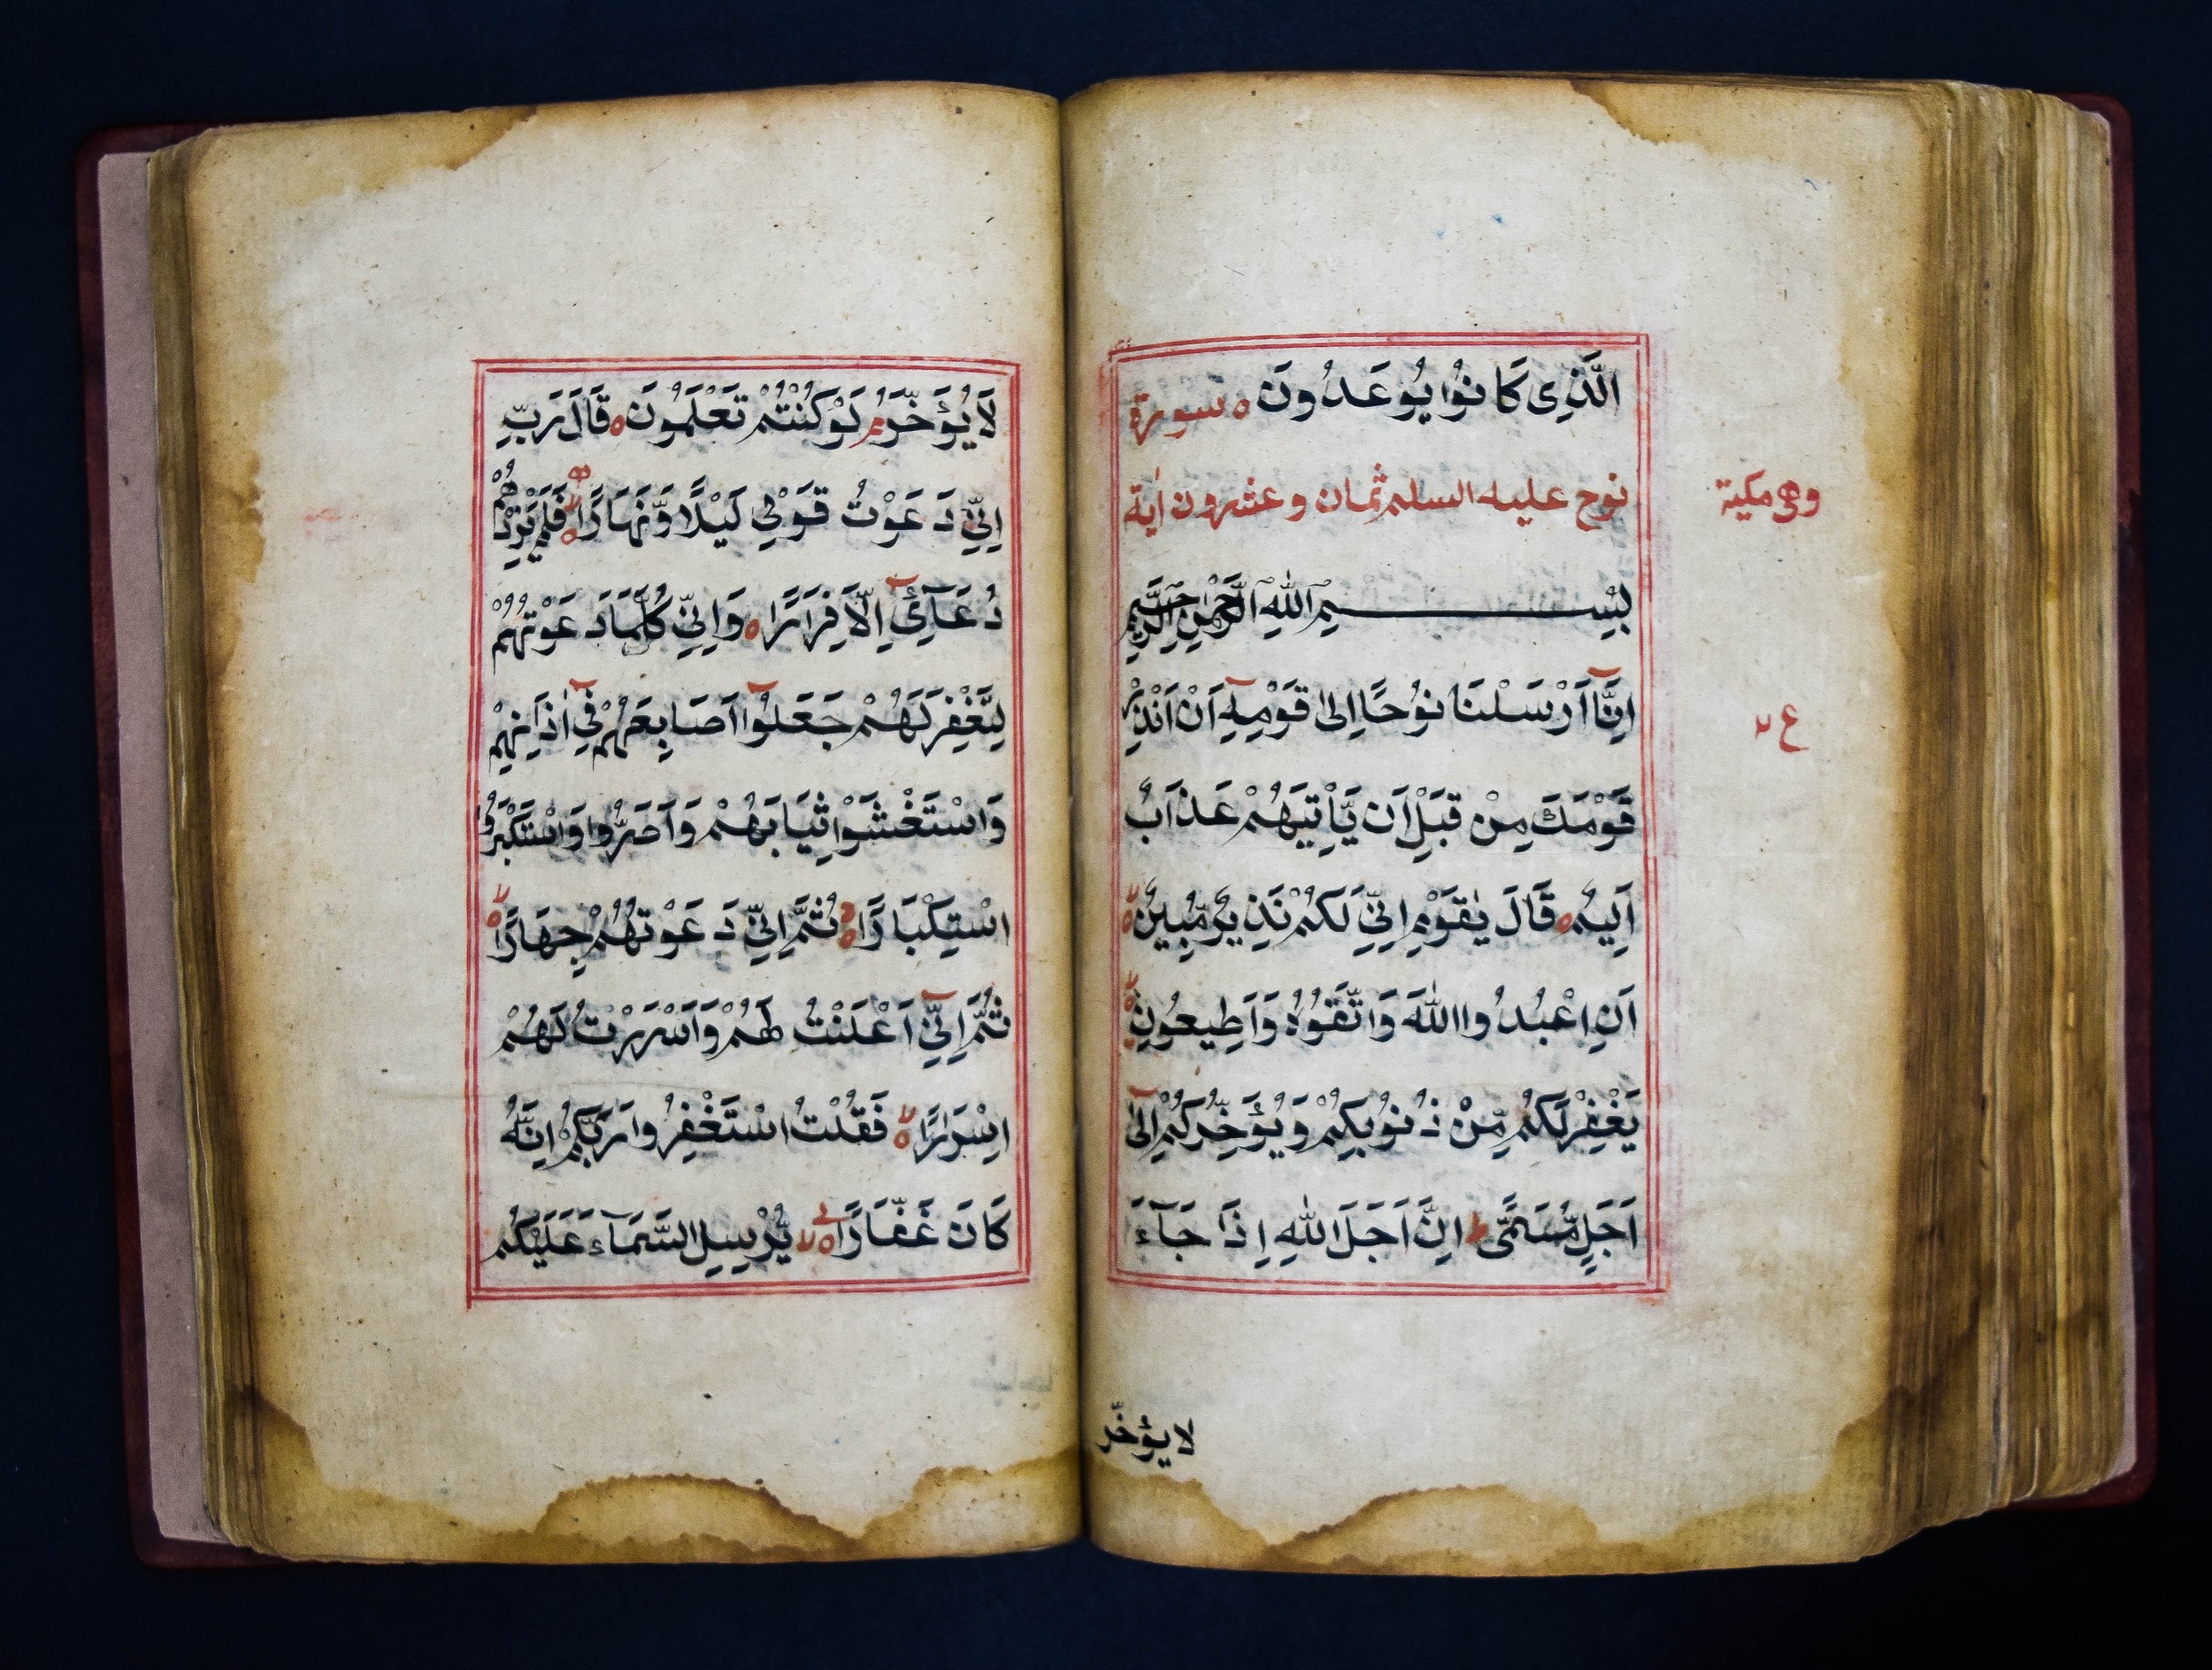 الَّذِی کَانُوا یُوْعَدُونَ ۝ سورة
نوح علیه السلم ثمان و عشرون اٰیة
وهی مکیة
بِسْمِ اللّٰهِ الرَّحْمٰنِ الرَّحِیْمِ
اِنَّآ اَرْسَلْنَا نُوْحًا اِلٰی قَوْمِهٖٓ اَنْ اَنْذِرْ
ع
قَوْمَكَ مِنْ قَبْلِ اَن یَّاْتِیَهُمْ عَذَابٌ
اَلِیْمٌ ۝ قَالَ یٰقَوْمِ اِنِّیْ لَکُمْ نَذِیْرٌ مُّبِیْنٌ ۝
اَنِ اعْبُدُوا اللّٰهَ وَاتَّقُوْهُ وَاَطِیعُوْنِ ۝
یَغْفِرْلَکُمْ مِّنْ ذُنُوْبِکُمْ وَیُؤَخِّرْکُمْ اِلٰٓی
اَجَلٍ مُّسَمًّی ط اِنَّ اَجَلَ اللّٰهِ اِذَا جَآءَ
لا یؤخّر
لَا یُؤَخَّرُ م لَوْ کُنْتُمْ تَعْلَمُوْنَ ۝ قَالَ رَبِّ
اِنِّیْ دَعَوْتُ قَوْمِیْ لَیْلًا وَّنَهَارًا ۝ فَلَمْ یَزِدْهُمْ
دُعَآءِیْٓ اِلَّا فِرَارًا ۝ وَاِنِّیْ کُلَّمَا دَعَوْتُهُمْ
لِتَغْفِرَ لَهُمْ جَعَلُوْٓا اَصَابِعَهُمْ فِیْٓ اٰذَانِهِمْ
وَاسْتَغْشَوْا ثِیَابَهُمْ وَاَصَرُّوا وَاسْتَکْبَرُوا
اسْتِکْبَارًا ۝ ثُمَّ اِنِّیْ دَعَوْتُهُمْ جِهَارًا ۝
ثُمَّ اِنِّیْٓ اَعْلَنْتُ لَهُمْ وَاَسْرَرْتُ لَهُمْ
اِسْرَارًا ۝ فَقُلْتُ اسْتَغْفِرُوا رَبَّکُمْ اِنَّهٗ
کَانَ غَفَّارًا ۝ یُّرْسِلِ السَّمَآءَ عَلَیْکُمْ